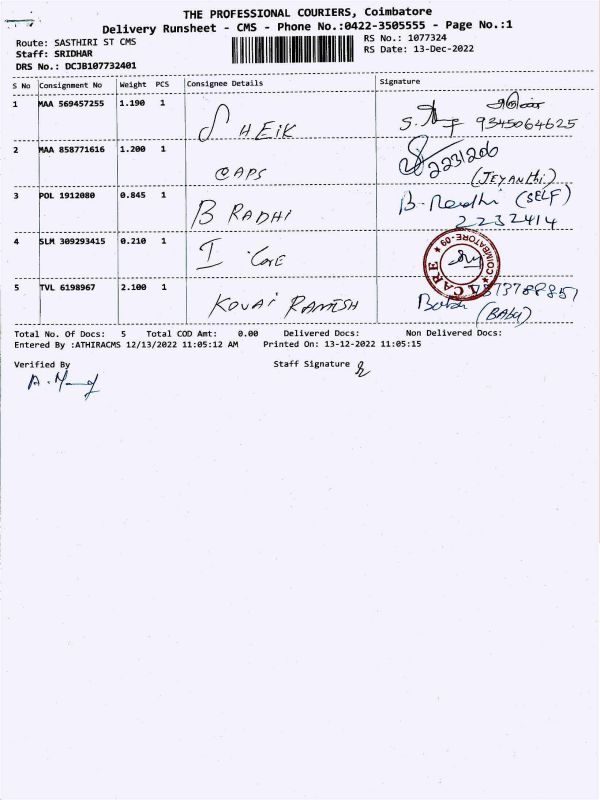 THE PROFESSIONAL COURIERS, Coimbatore
Delivery Runsheet - CMS - Phone No.:0422-3505555 - Page No.:1
Route: SASTHIRI ST CMS
RS No.: 1077324
Staff: SRIDHAR
RS Date: 13-Dec-2022
DRS No.: DCJB107732401
S No Consignment No Weight PCS Consignee Details Signature
1 MAA 569457255 1.190 1 SHEIK 9345064625
2 MAA 858771616 1.200 1 CAPS 2231206
(JEYANthi.)
3 POL 1912080 0.845 1 B RADHI B-Readhi (SELF)
2232414
4 SLM 309293415 0.210 1 I Care
COIMBATORE-09
CARE
5 TVL 6198967 2.100 1 KOVAI RAMESH
(BABy)
Total No. Of Docs: 5 Total COD Amt: 0.00 Delivered Docs: Non Delivered Docs:
Entered By :ATHIRACMS 12/13/2022 11:05:12 AM Printed On: 13-12-2022 11:05:15
Verified By Staff Signature